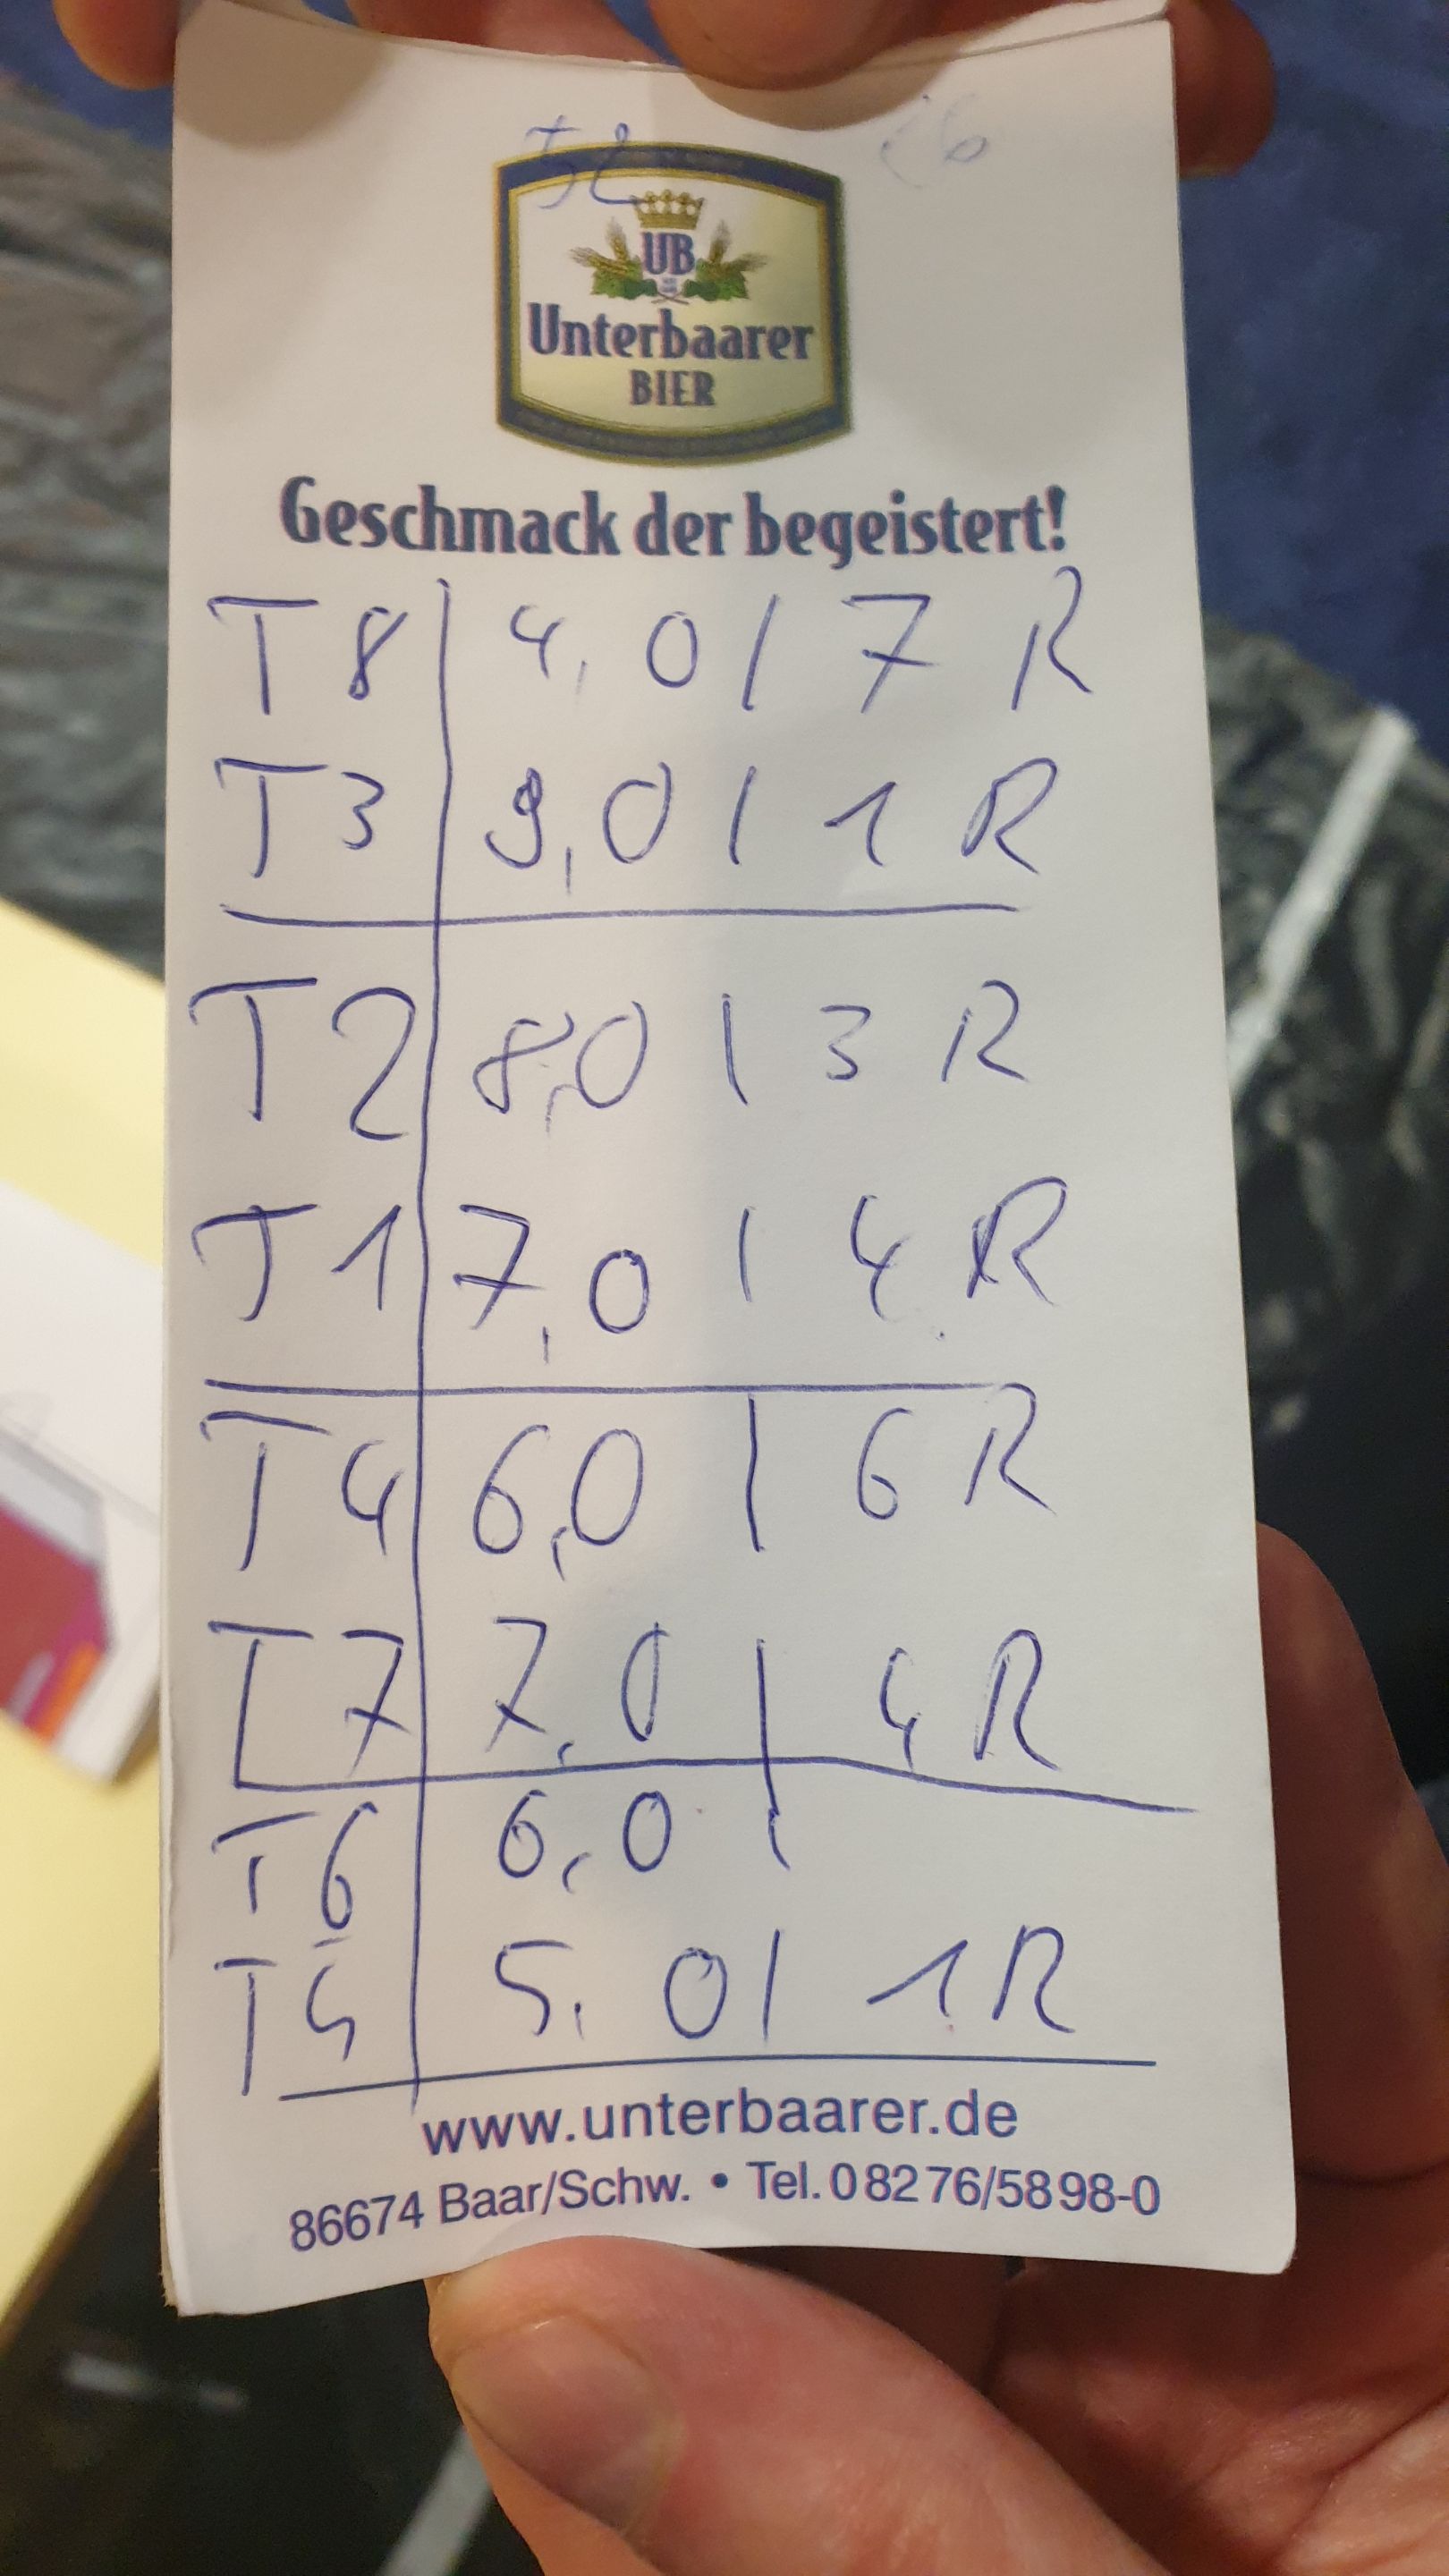 52 26
UB
Unterbaarer
BIER
Geschmack der begeistert!
T8 4,0 | 7 R
T3 9,0 | 1 R
T2 8,0 | 3 R
T1 7,0 | 4 R
T4 6,0 | 6 R
T7 7,0 | 4 R
T6 6,0 |
T5 5,0 | 1 R
www.unterbaarer.de
86674 Baar/Schw. • Tel. 0 82 76/58 98-0